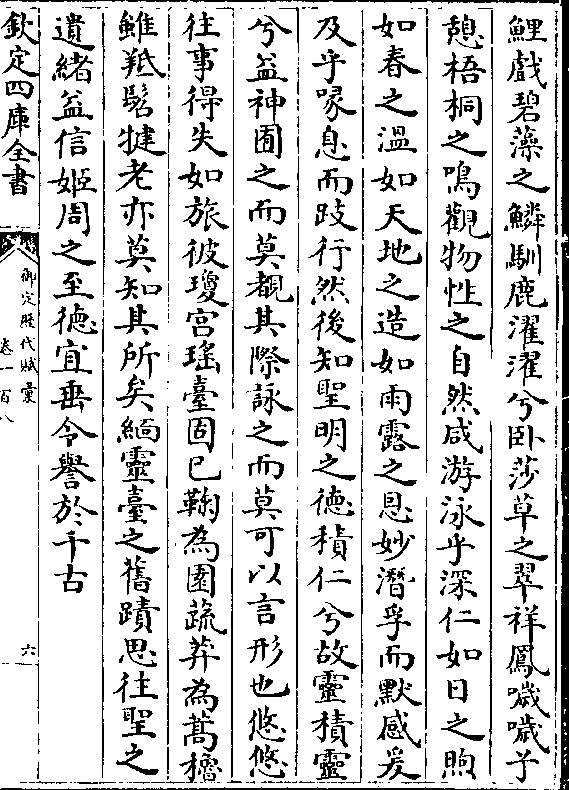 鯉戲碧藻之鱗馴鹿濯濯兮卧莎草之翠祥鳳噦噦兮
憩梧桐之鳴觀物性之自然咸游泳乎深仁如日之煦
如春之溫如天地之造如雨露之恩妙潛孚而默感爰
及乎喙息而跂行然後知聖明之德積仁兮故靈積靈
兮益神囿之而莫覩其際詠之而莫可以言形也悠悠
往事得失如旅彼瓊宮瑤臺固已鞠為園蔬莽為蒿穭
雖羝髡犍老亦莫知其所矣緬靈臺之舊蹟思往聖之
遺緒益信姬周之至德宜垂令譽於千古
欽定四庫全書
御定歷代賦彙
卷一百八
六